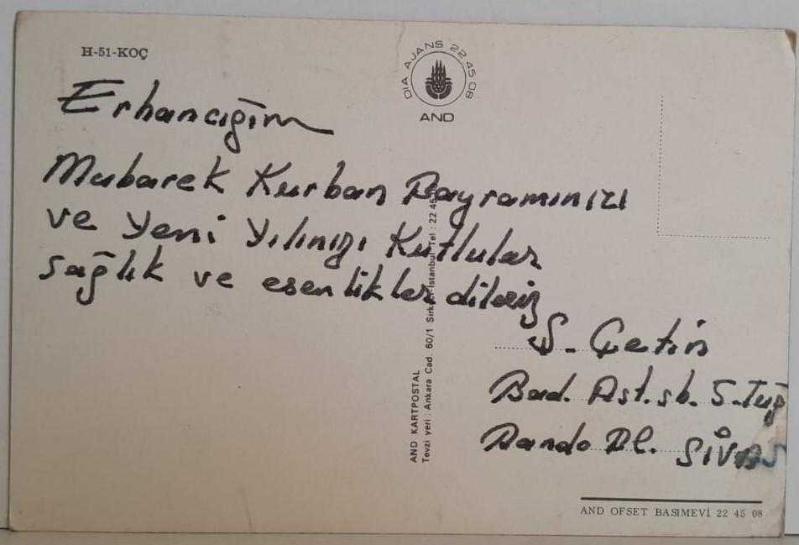 H-51-KOÇ
DİA AJANS 22 45 08
AND
Erhancığım
Mubarek Kurban Bayramınızı
ve Yeni Yılınızı Kutlular
sağlık ve esenlikler dileriz
Ş. Çetin
Bad. Ast.sb. 5.Tuğ
Bando Bl. SİVAS
AND KARTPOSTAL
Tevzi yeri : Ankara Cad. 60/1 Sirkeci-İstanbul Tel : 22 45
AND OFSET BASIMEVİ 22 45 08